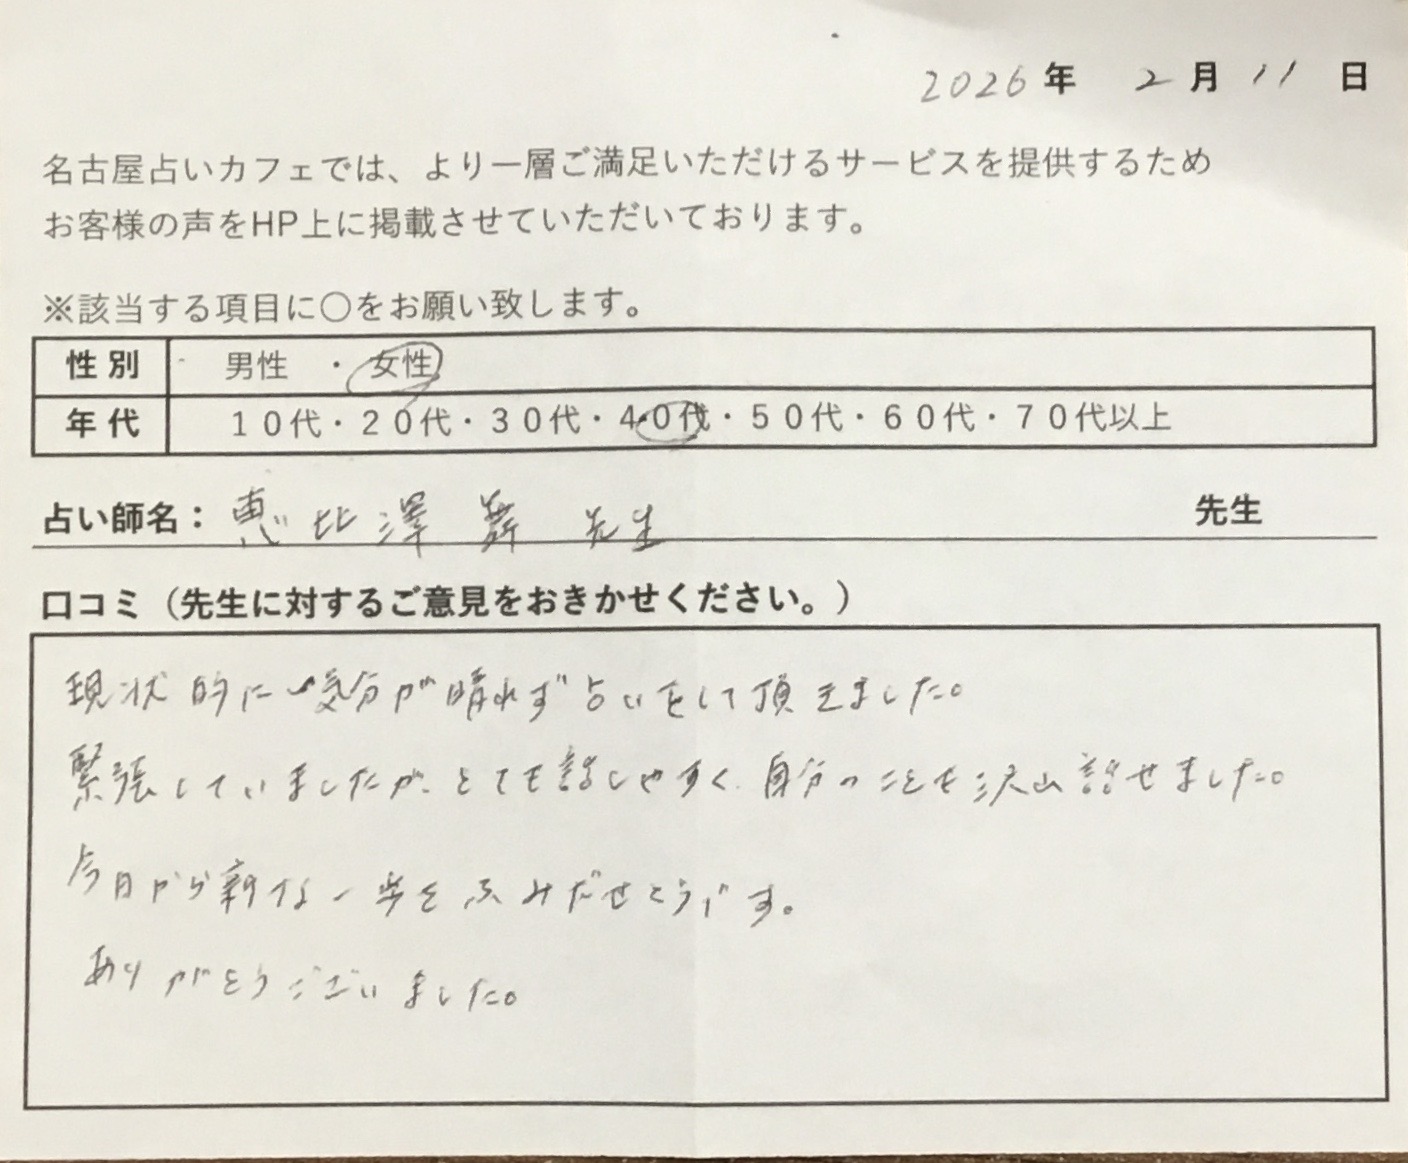 2026年 2月 11日
名古屋占いカフェでは、より一層ご満足いただけるサービスを提供するため
お客様の声をHP上に掲載させていただいております。
※該当する項目に○をお願い致します。
性別 男性 ・ 女性
年代 10代・20代・30代・40代・50代・60代・70代以上
占い師名: 恵比澤 舞 先生 先生
口コミ（先生に対するご意見をおきかせください。）
現状的に気分が晴れず占いをして頂きました。
緊張していましたが、とても話しやすく、自分のことも沢山話せました。
今日から新な一歩をふみだせそうです。
ありがとうございました。